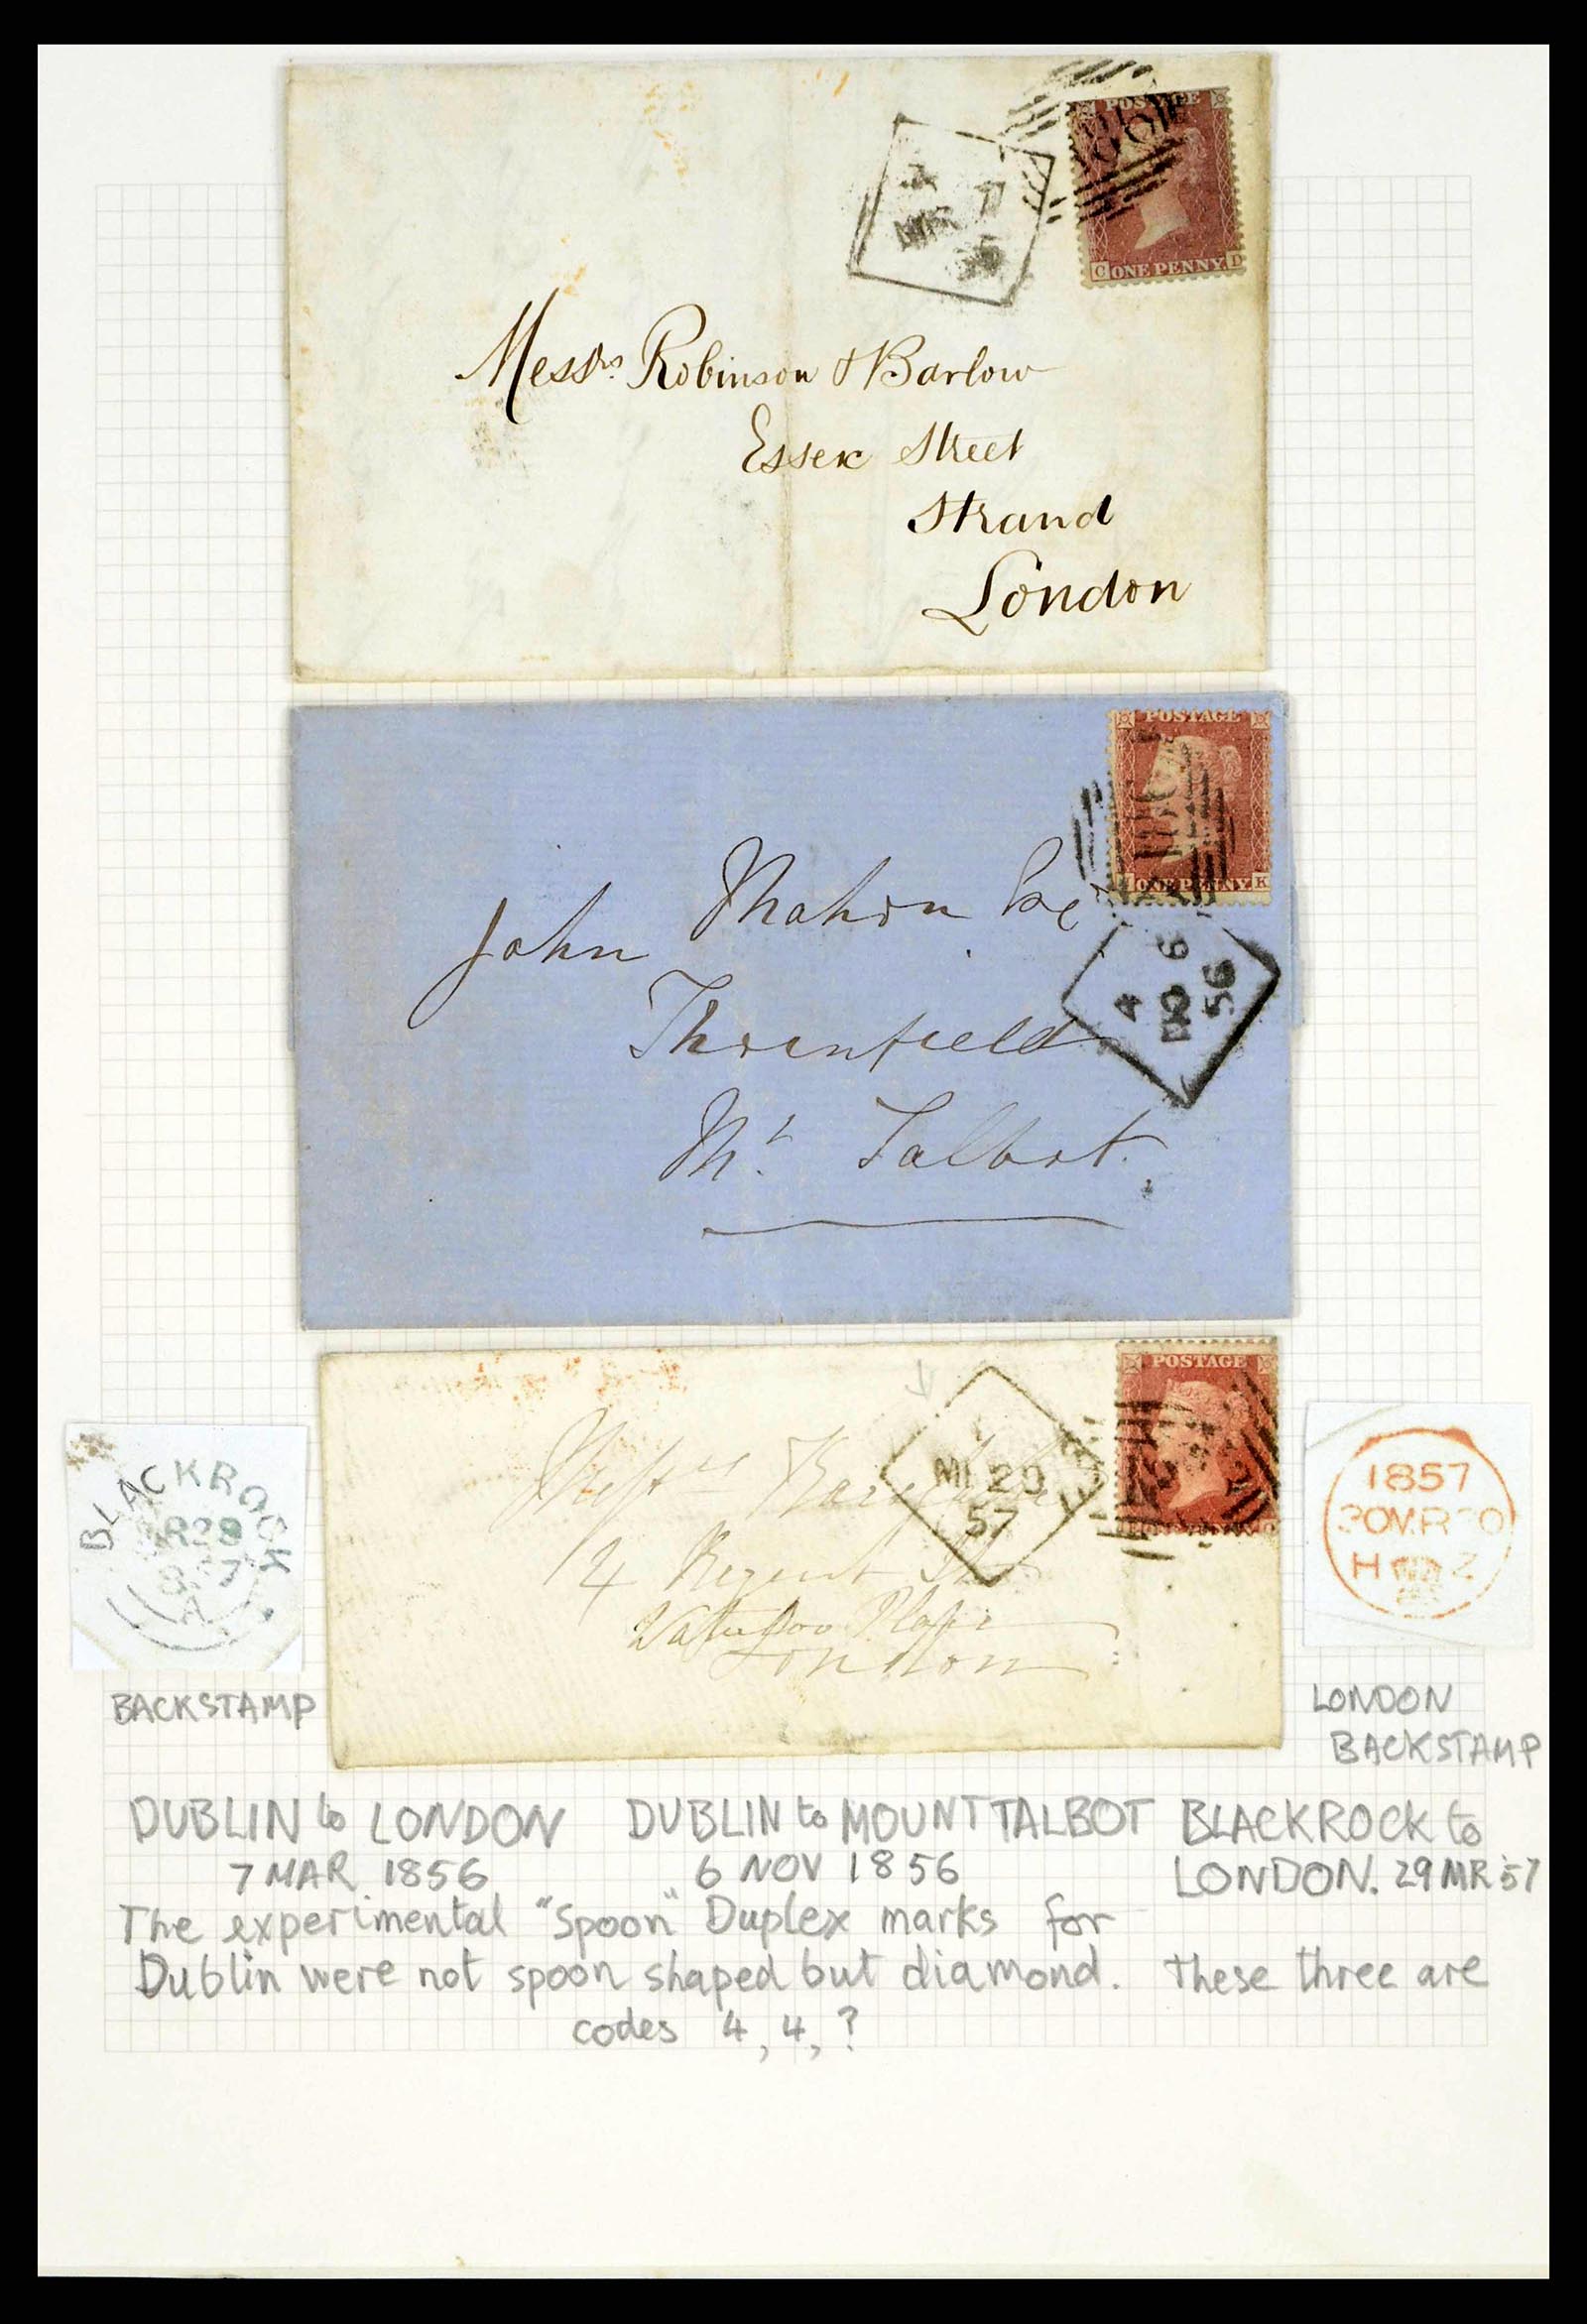 POSTAGE
MR 7
56
C ONE PENNY D
Messrs. Robinson & Barlow
Essex Street
Strand
London
POSTAGE
ONE PENNY K
John Mahon Esq
4
6
56
Thornfield
Mt. Talbot.
POSTAGE
29
57
14 Regent St
Waterloo Place
London
BLACKROCK
R29
57
A
BACKSTAMP
1857
30 MR 30
H Z
LONDON
BACKSTAMP
DUBLIN to LONDON
7 MAR. 1856
DUBLIN to MOUNT TALBOT
6 NOV 1856
BLACKROCK to
LONDON. 29 MR 57
The experimental "Spoon" Duplex marks for
Dublin were not spoon shaped but diamond. These three are
codes 4, 4, ?